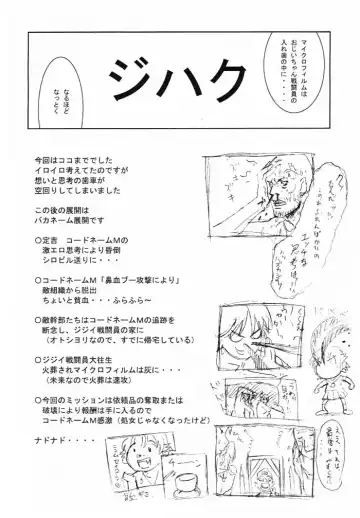 マイクロフィルムは
おじいちゃん戦闘員の
入れ歯の中に・・・・
なるほど
なっとく
ジハク
今回はココまででした
イロイロ考えてたのですが
想いと思考の歯車が
空回りしてしまいました
この後の展開は
バカネーム展開です
〇定吉　コードネームMの
激エロ思考により昏倒
シロビル送りに・・・
〇コードネームM「鼻血ブー攻撃により」
敵組織から脱出
ちょいと貧血・・・ふらふら～
〇敵幹部たちはコードネームMの追跡を
断念し、ジジイ戦闘員の家に
（オトショリなので、すでに帰宅している）
〇ジジイ戦闘員大往生
火葬されマイクロフィルムは灰に・・・
（未来なので火葬は速攻）
〇今回のミッションは依頼品の奪取または
破壊により報酬は手に入るので
コードネームM感激（処女じゃなくなったけど）
ナドナド・・・・
チーン